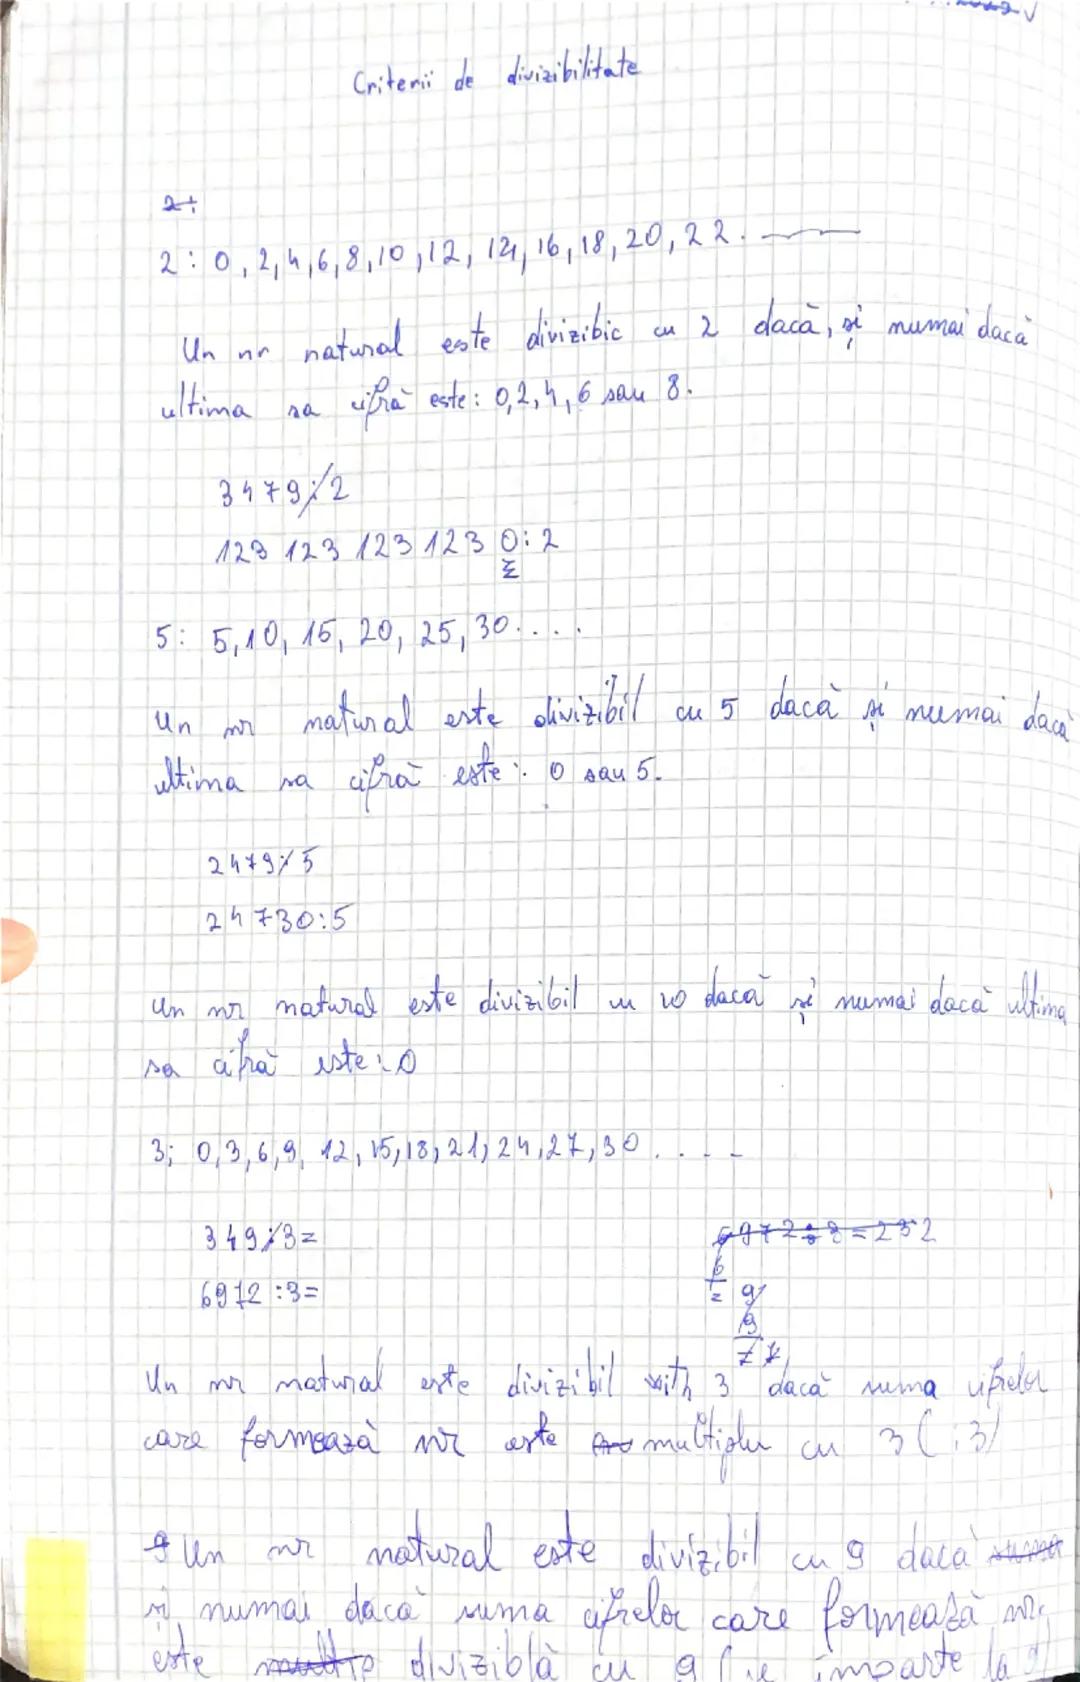 Criterii de divizibilitate
2:
2: 0, 2, 4, 6, 8, 10, 12, 14, 16, 18, 20, 22.
Un nr natural este divizibic cu 2 dacă, și numai dacă
ultima sa cifră este: 0, 2, 4, 6 sau 8.
3479⋮̸2
123 123 123 123 0⋮2
5: 5, 10, 15, 20, 25, 30....
Un nr natural este divizibil cu 5 dacă și numai dacă
ultima sa cifră este: 0 sau 5.
2479⋮̸5
24730⋮5
Un nr natural este divizibil cu 10 dacă și numai dacă ultima
sa cifră este: 0
3; 0, 3, 6, 9, 12, 15, 18, 21, 24, 27, 30....
349⋮̸3=
6972:3=
6972:3=232
6
= 9
9
7
Un nr natural este divizibil with 3 dacă suma cifrelor
care formează nr este multiplu cu 3 (⋮3)
9 Un nr natural este divizibil cu 9 dacă
și numai dacă suma cifrelor care formează nr
este multip diviziblă cu 9 (se împarte la 9)